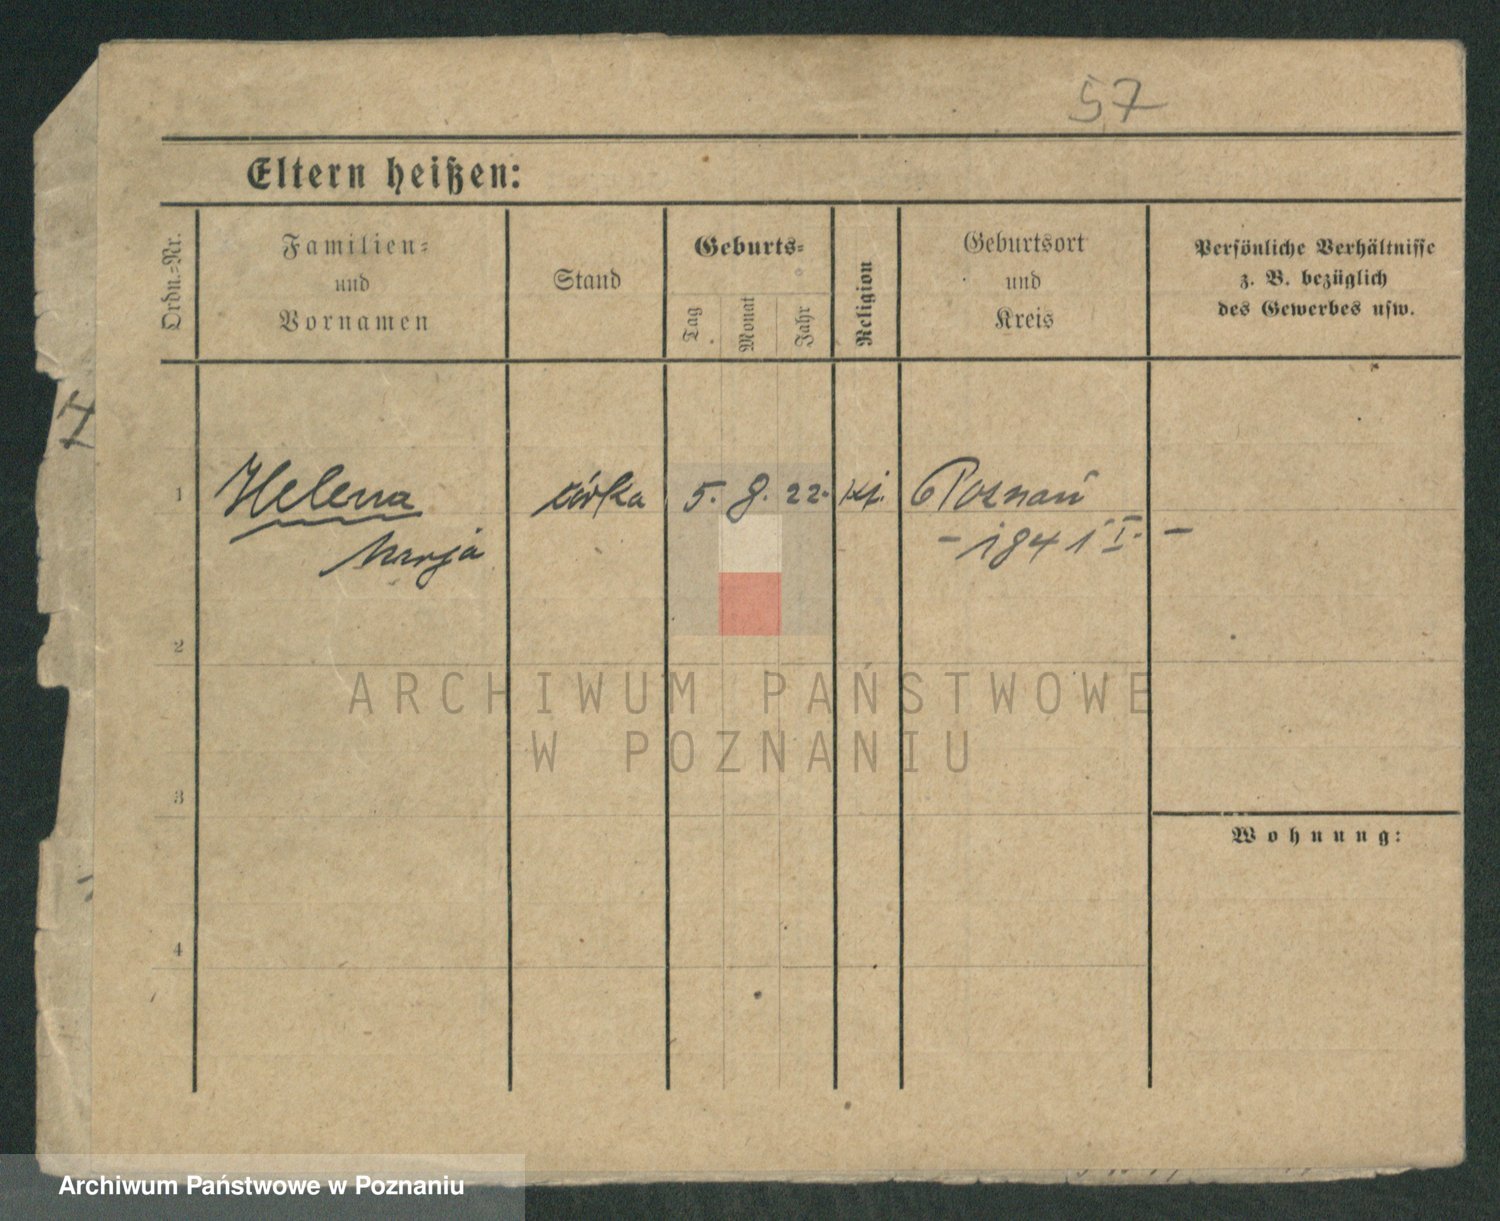 57
Eltern heißen:
Ordn.-Nr.
Familien-
und
Vornamen
Stand
Geburts-
Tag
Monat
Jahr
Religion
Geburtsort
und
Kreis
Persönliche Verhältnisse
z. B. bezüglich
des Gewerbes usw.
7
1 Helena córka 5. 8. 22. Poznań
Marja - 1841 I. -
2
ARCHIWUM PAŃSTWOWE
W POZNANIU
3
Wohnung:
4
Archiwum Państwowe w Poznaniu